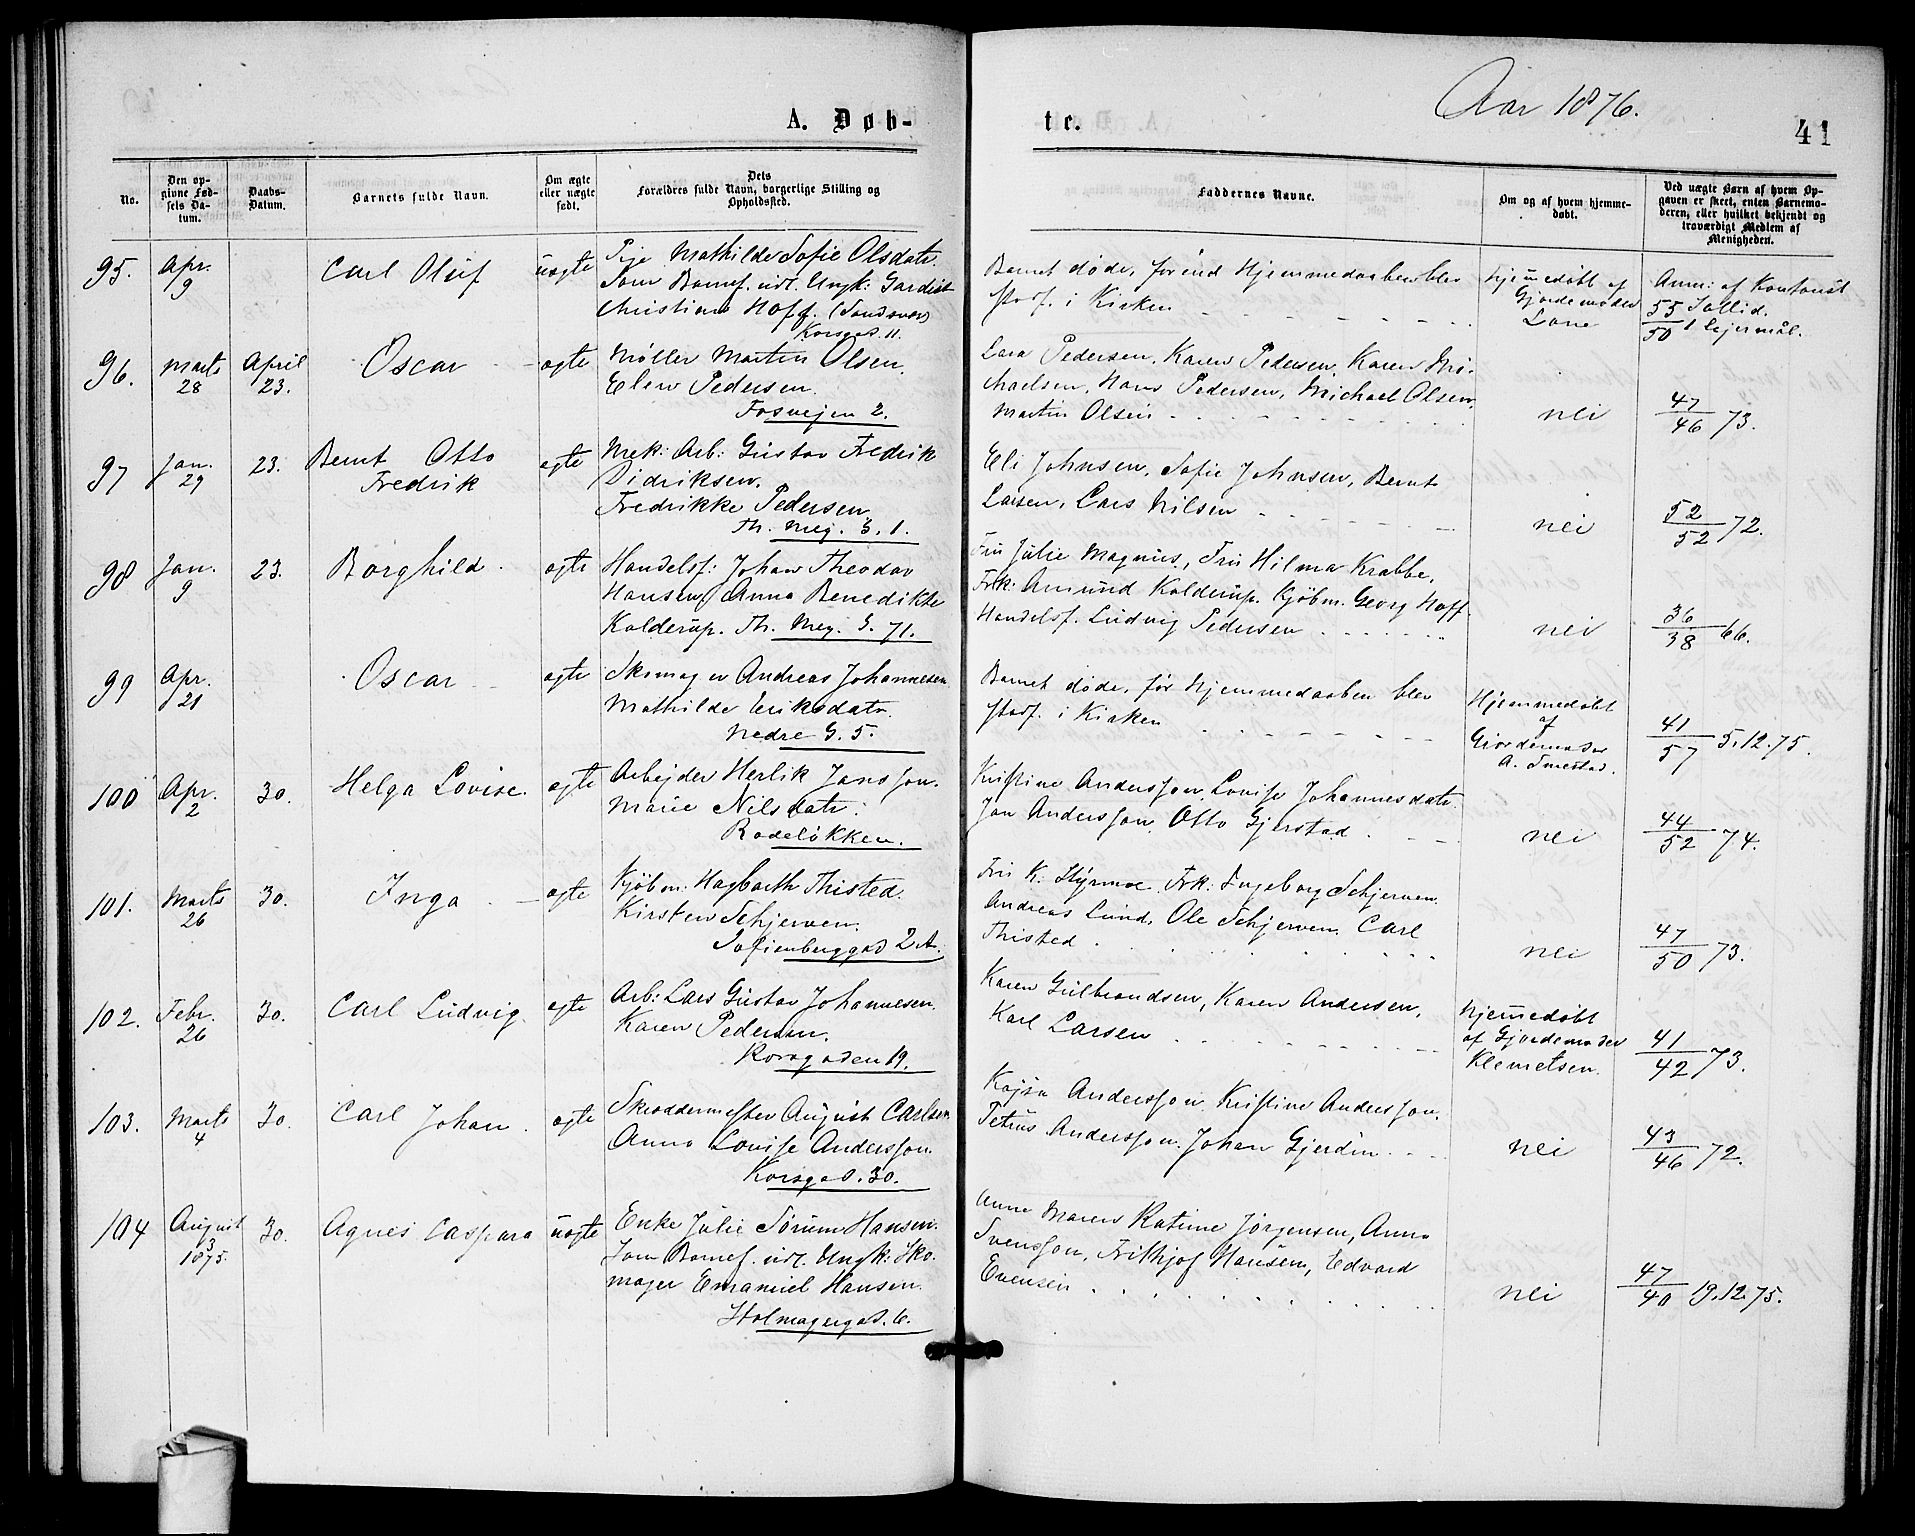 Aar 1876.
A. Døb-
te.
41
No.
Den op-
givne Fød-
sels Da-
tum.
Daabs-
Datum.
Barnets fulde Navn.
Om ægte
eller uægte
født.
Dets
Forældres fulde Navn, borgerlige Stilling og
Opholdssted.
Faddernes Navne.
Om og af hvem hjemme-
døbt.
Ved uægte Børn af hvem Op-
gaven er skeet, enten Barnemo-
deren, eller hvilket bekjendt og
troværdigt Medlem af
Menigheden.
95.
Apr.
9
Carl Oluf
uægte
Pige Mathilde Sofie Olsdatr.
Som Barnef. udl. Ungk: Gardist
Christian Hoff. (Sandsvær)
Korsgad. 11.
Barnet døde, førend Hjemmedaaben blev
stadf. i Kirken
Hjemedøbt af
Gjordemoder
Lane
Anm: af Kontorist
55
50 1 Lejermål.
96.
Marts
28
April
23.
Oscar
ægte
Møller Martin Olsen.
Elen Pedersen.
Fosvejen 2.
Lara Pedersen, Karen Pedersen, Karen Mi-
chaelsen, Hans Pedersen, Michael Olsen,
Martin Olsen
nei
47
46 73.
97
Jan.
29
23.
Bernt Otto
Fredrik
ægte
Mek: Arb: Gustav Fredrik
Didriksen.
Fredrikke Pedersen
Th. Mey. G. 1.
Eli Johnsen, Sofie Johnsen, Bernt
Larsen, Lars Nilsen
nei
52
52 72.
98
Jan.
9
23.
Borghild
ægte
Handelsf: Johan Theodor
Hansen, Anna Benedikte
Kolderup. Th. Mey. G. 71.
Fru Julie Magnus, Fru Hilma Krabbe,
Frk: Amund Kolderup. Kjøbm. Georg Hoff
Handelsf. Ludvig Pedersen
nei
36
38 66.
99
Apr.
21
Oscar
ægte
Skomager Andreas Johannesen
Mathilde Eriksdatr.
Nedre G. 5.
Barnet døde, før Hjemmedaaben blev
stadf. i Kirken
Hjemmedøbt
af
Gjordemoder
A. Smestad.
41
57 5.12.75.
100
Apr.
2
30.
Helga Lovise.
ægte
Arbejder Herlik Jansson.
Marie Nilsdatr:
Rodeløkken.
Kristine Andersson, Lovise Johannesdatr.
Jon Andersson, Otto Gjerstad.
nei
44
52 74.
101.
Marts
26
30.
Inga
ægte
Kjøbm: Hagbarth Thisted.
Kirsten Schjerven.
Sofienberggad 2 A.
Fru K. Styrmoe. Frk: Ingeborg Schjerven.
Andreas Lund, Ole Schjerven. Carl
Thisted
nei
47
50 73.
102.
Febr.
26
30.
Carl Ludvig.
ægte
Arb: Lars Gustav Johannesen.
Karen Pedersen.
Korsgaden 19.
Karen Gulbrandsen, Karen Andersen,
Karl Larsen
Hjemedøbt
af Gjordemoder
Klemetsen.
41
42 73.
103.
Marts
4
30.
Carl Johan.
ægte
Skræddermester August Carlsen
Anna Lovise Andersson.
Korsgad. 30.
Kajsa Andersson, Kristine Andersson.
Petrus Andersson. Johan Gjerdin
nei
43
46 72.
104
August
3
1875.
30.
Agnes Caspara
uægte
Enke Julie Sørum Hansen.
Som Barnef. udl. Ungk: Sko-
mager Emanuel Hansen.
Holmagergad. 6.
Anne Maren Katrine Jørgensen, Anna
Svensson, Frithjof Hansen, Edvard
Evensen
nei
47
40 19.12.75.